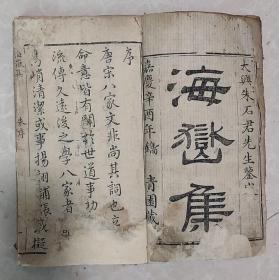 大興朱石君先生鑒定
海嶽集
嘉慶辛酉年鐫
青園藏
序
唐宋八家文非尚其詞也立
命意皆有關於世道事功
流傳久遠後之學八家者
清潔或事揚詡鋪張或擬